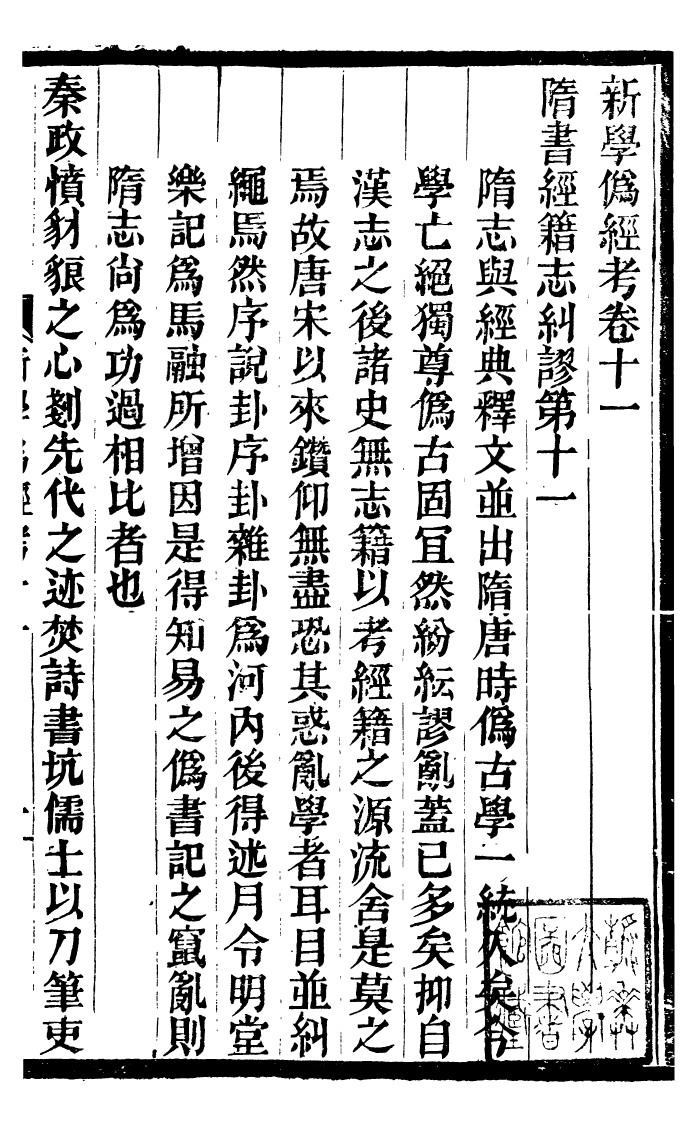 新學僞經考卷十一
隋書經籍志糾謬第十一
隋志與經典釋文並出隋唐時僞古學一統久矣今
學亡絕獨尊僞古固宜然紛紜謬亂蓋已多矣抑自
漢志之後諸史無志籍以考經籍之源流舍是莫之
焉故唐宋以來鑽仰無盡恐其惑亂學者耳目並糾
繩焉然序說卦序卦雜卦爲河內後得述月令明堂
樂記爲馬融所增因是得知易之僞書記之竄亂則
隋志尙爲功過相比者也
秦政憤豺狼之心剗先代之迹焚詩書坑儒士以刀筆吏
新學僞經考十一
一